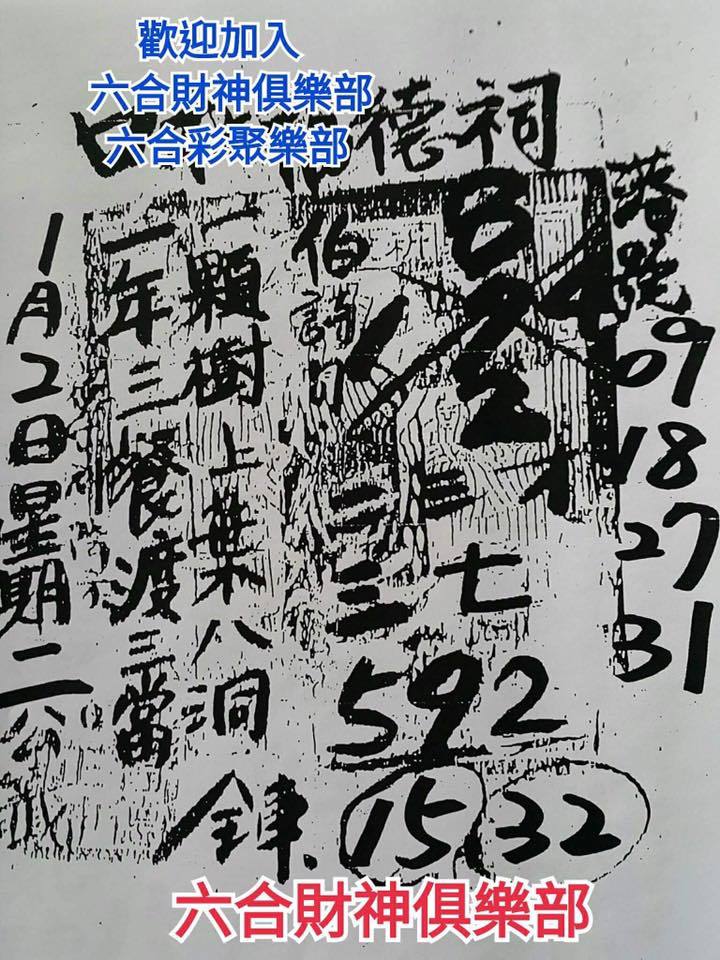 歡迎加入
六合財神俱樂部
六合彩聚樂部
德祠
落號
09
18
27
31
8
2
2
4
伯詩
二三
三七
592
一顆樹上葉八洞
一年三餐渡三當
1月2日星期二公
15
32
六合財神俱樂部